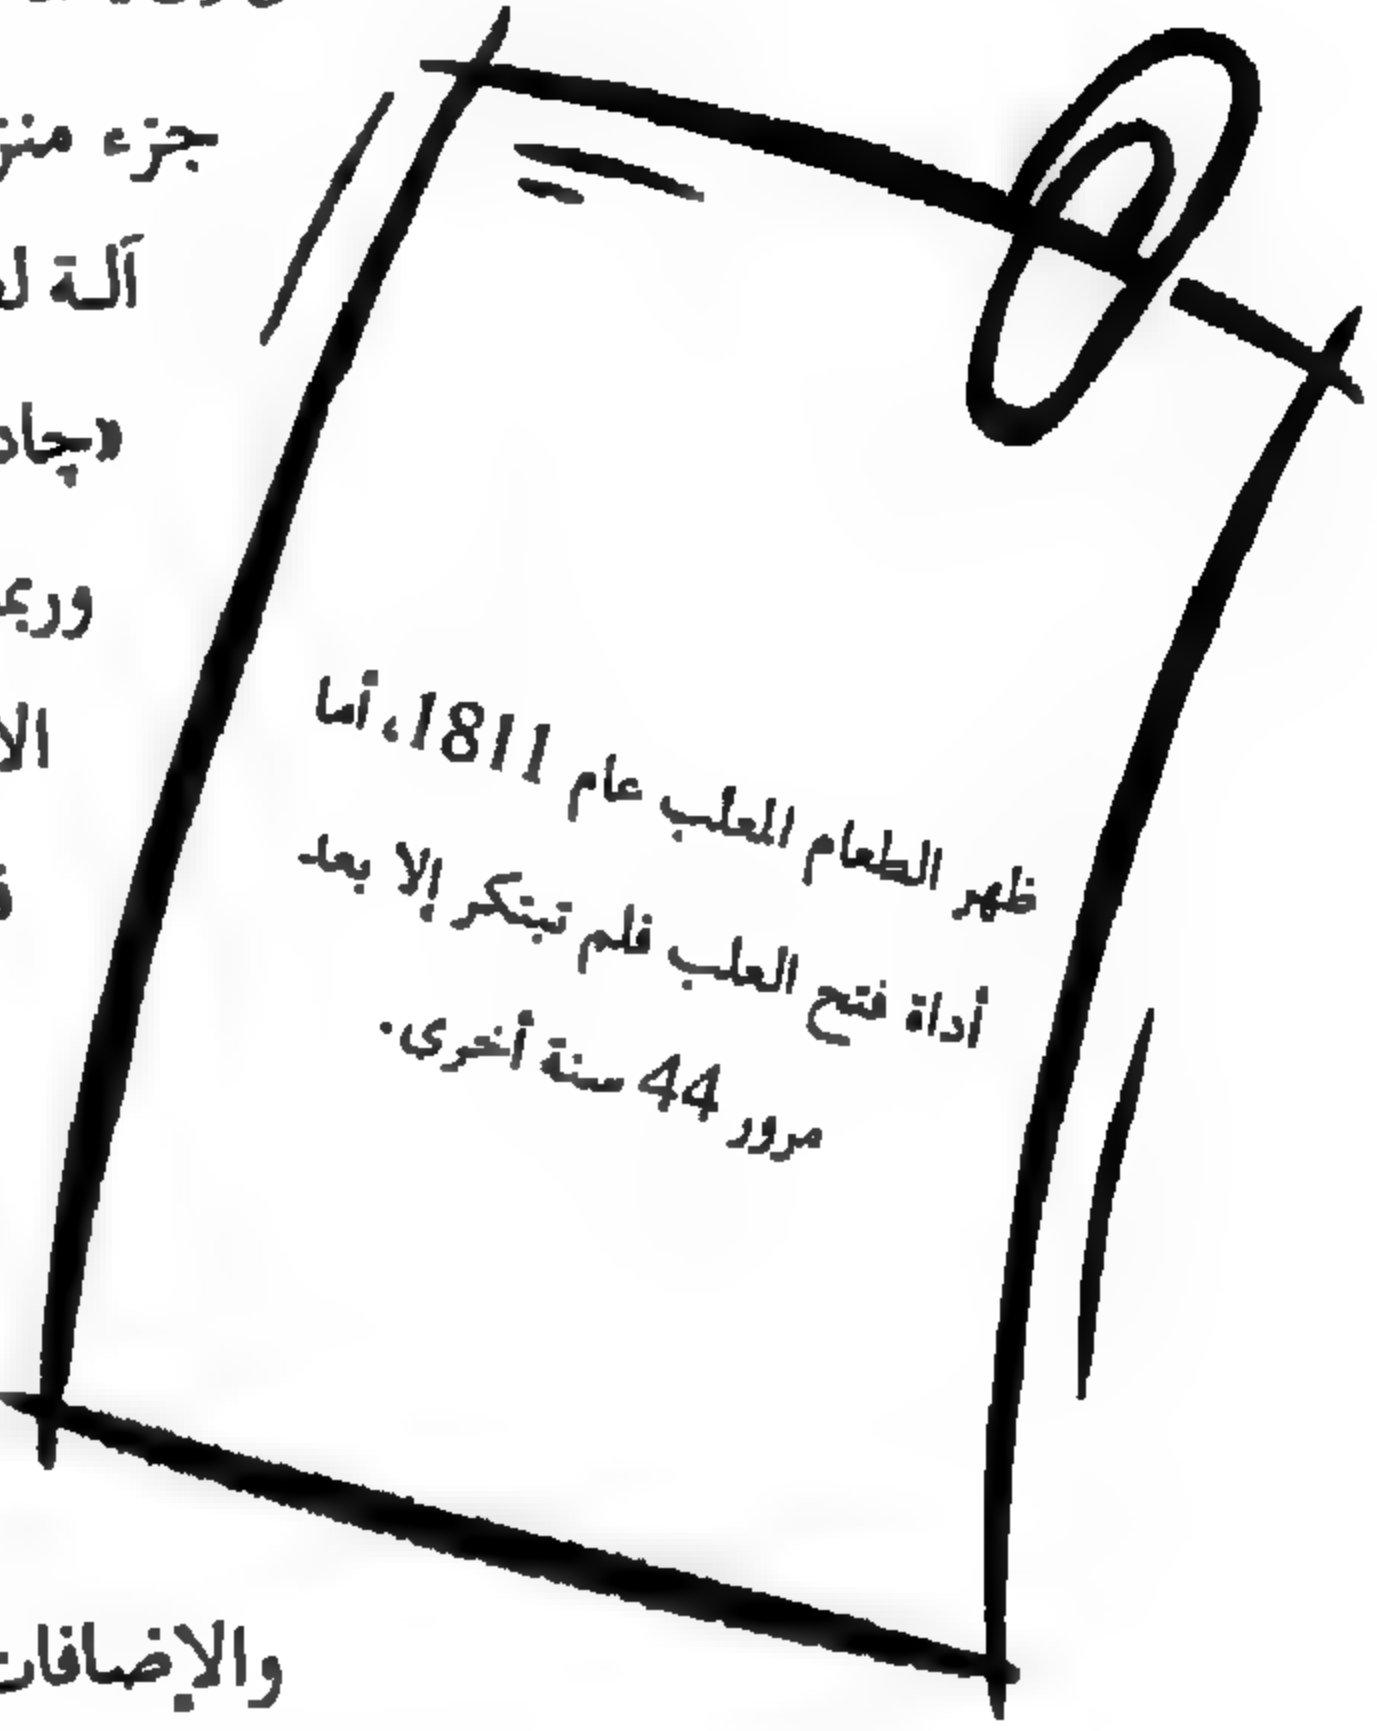 جزء
آلة
«چاد
وربما
ظهر الطعام المعلب عام 1811، أما
أداة فتح العلب فلم تبتكر إلا بعد
مرور 44 سنة أخرى.
والإضافات